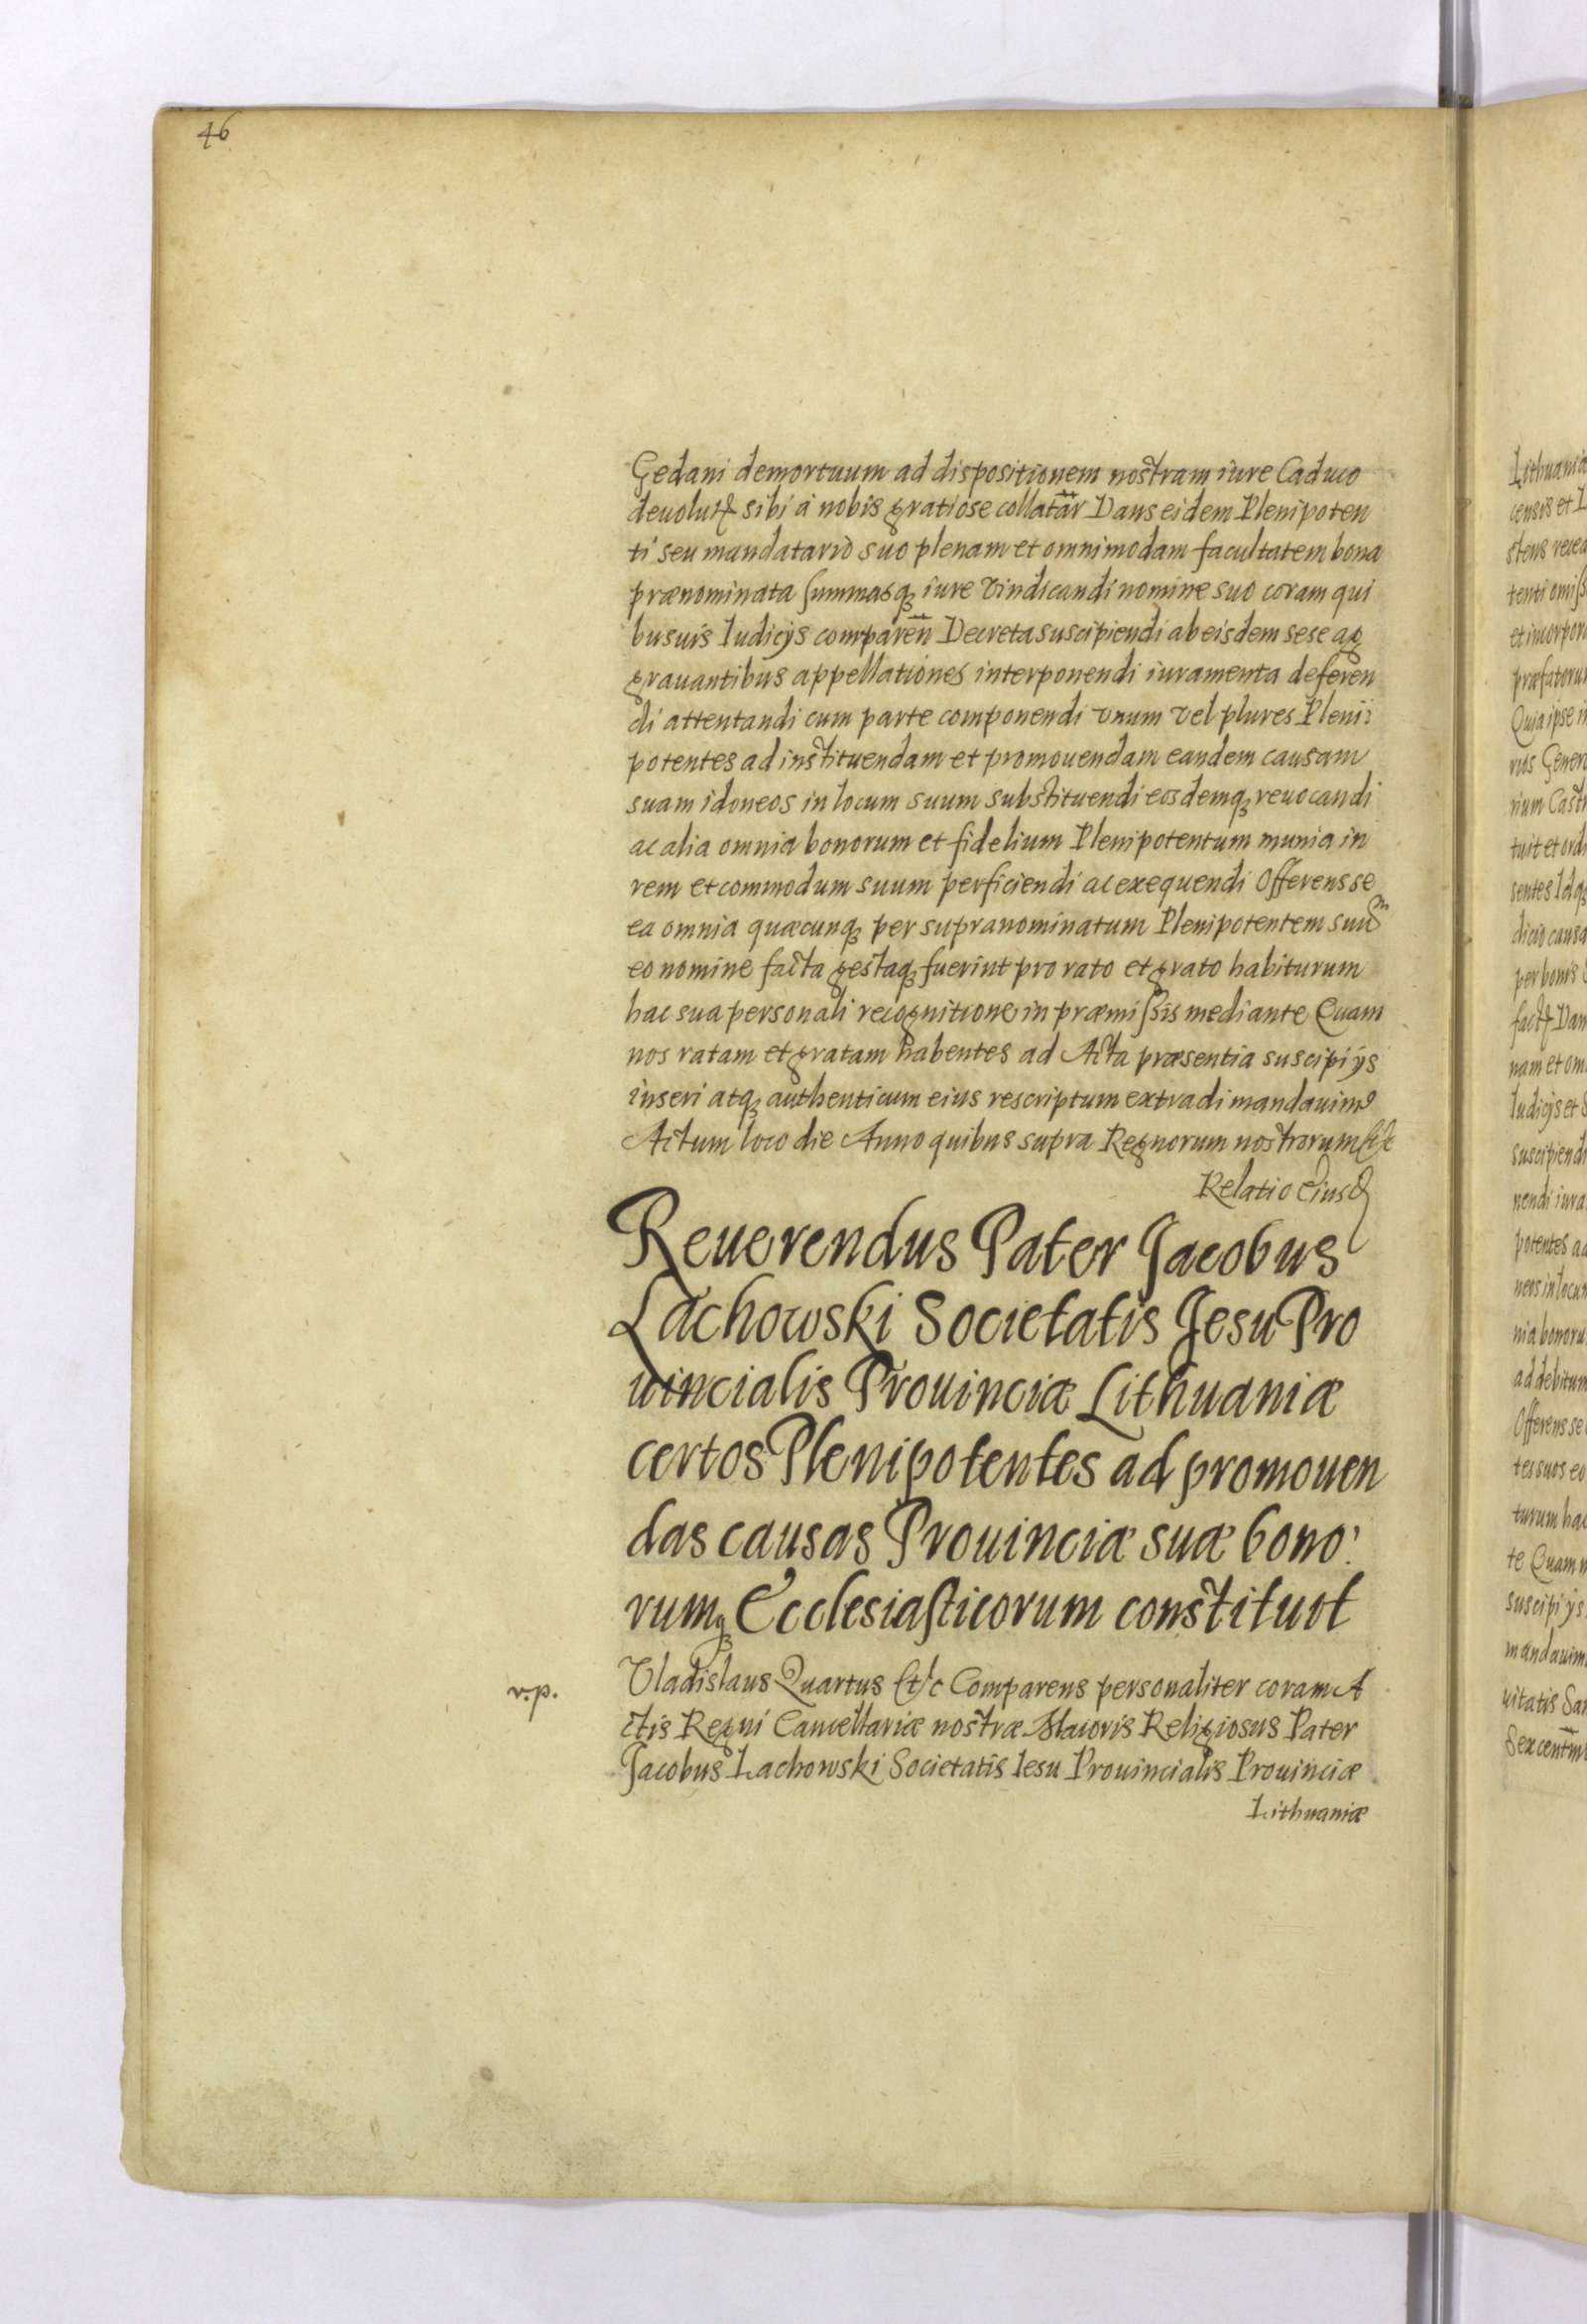 46
Gedani demortuum ad dispositionem nostram iure Caduco
sibi à nobis gratiose collatar̄ Dans eidem Plenipoten
ti seu mandatario suo plenam et omnimodam facultatem bona
prænominata summasq₃ iure vindicandi nomine suo coram qui
busuis Iudicijs comparen̄ Decreta suscipiendi ab eisdem sese ag
grauantibus appellationes interponendi iuramenta deferen
di attentandi cum parte componendi vnum vel plures Pleni:
potentes ad instituendam et promouendam eandem causam
suam idoneos in locum suum substituendi eosdemq₃ reuocandi
ac alia omnia bonorum et fidelium Plenipotentum munia in
rem et commodum suum perficiendi ac exequendi Offerens se
ea omnia quæcunq₃ per supranominatum Plenipotentem suuᵐ
eo nomine facta gestaq₃ fuerint pro rato et grato habiturum
hac sua personali recognitione in præmissis mediante Quam
nos ratam et gratam habentes ad Acta præsentia suscipi ijs
inseri atq₃ authenticum eius rescriptum extradi mandauim⁹
Actum loco die Anno quibus supra Regnorum nostrorum etc
Relatio Eiusd
Reuerendus Pater Jacobus
Lachowski Societatis Jesu Pro
uincialis Prouinciæ Lithuaniæ
certos Plenipotentes ad promouen
das causas Prouinciæ suæ bono:
rumq₃ Ecclesiasticorum constituit
Vladislaus Quartus etc Comparens personaliter coram A
ctis Regni Cancellariæ nostræ Maioris Religiosus Pater
Jacobus Lachowski Societatis Iesu Prouincialis Prouinciæ
Lithuaniæ